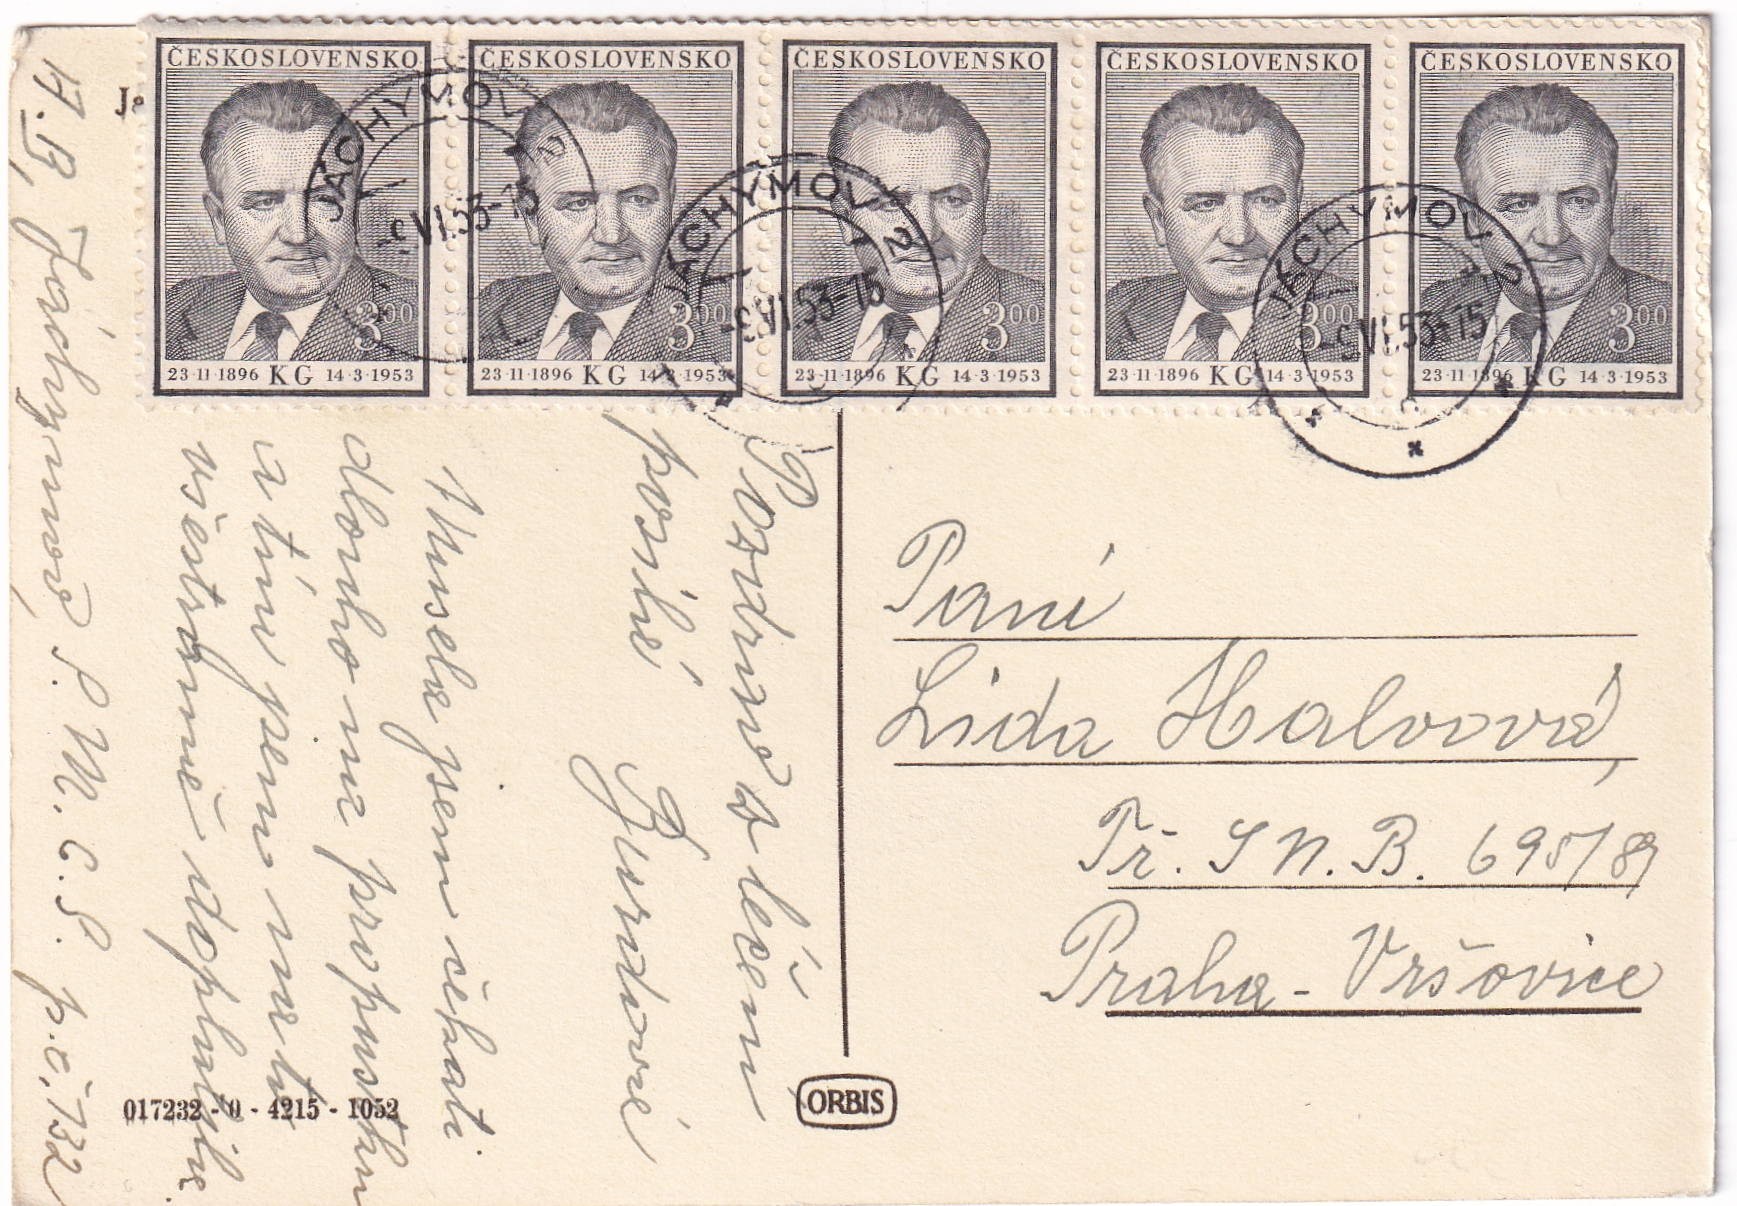 ČESKOSLOVENSKO ČESKOSLOVENSKO ČESKOSLOVENSKO ČESKOSLOVENSKO ČESKOSLOVENSKO
3 00 3 00 3 00 3 00 3 00
23·11·1896 KG 14·3·1953 23·11·1896 KG 14·3·1953 23·11·1896 KG 14·3·1953 23·11·1896 KG 14·3·1953 23·11·1896 KG 14·3·1953
JÁCHYMOV 2
-9.VI.53-15
JÁCHYMOV 2
-9.VI.53-15
JÁCHYMOV 2
-9.VI.53-15
Pozdrav z léčení
posílá
Musela jsem čekati
dlouho na propustku
a tím jsem
všestranně
Jáchymov P. M. C. S. p.č. 732
Paní
Lida Halvová,
Tř. S N. B. 695/89
Praha - Vršovice
017232 - 0 - 4215 - 1052
ORBIS